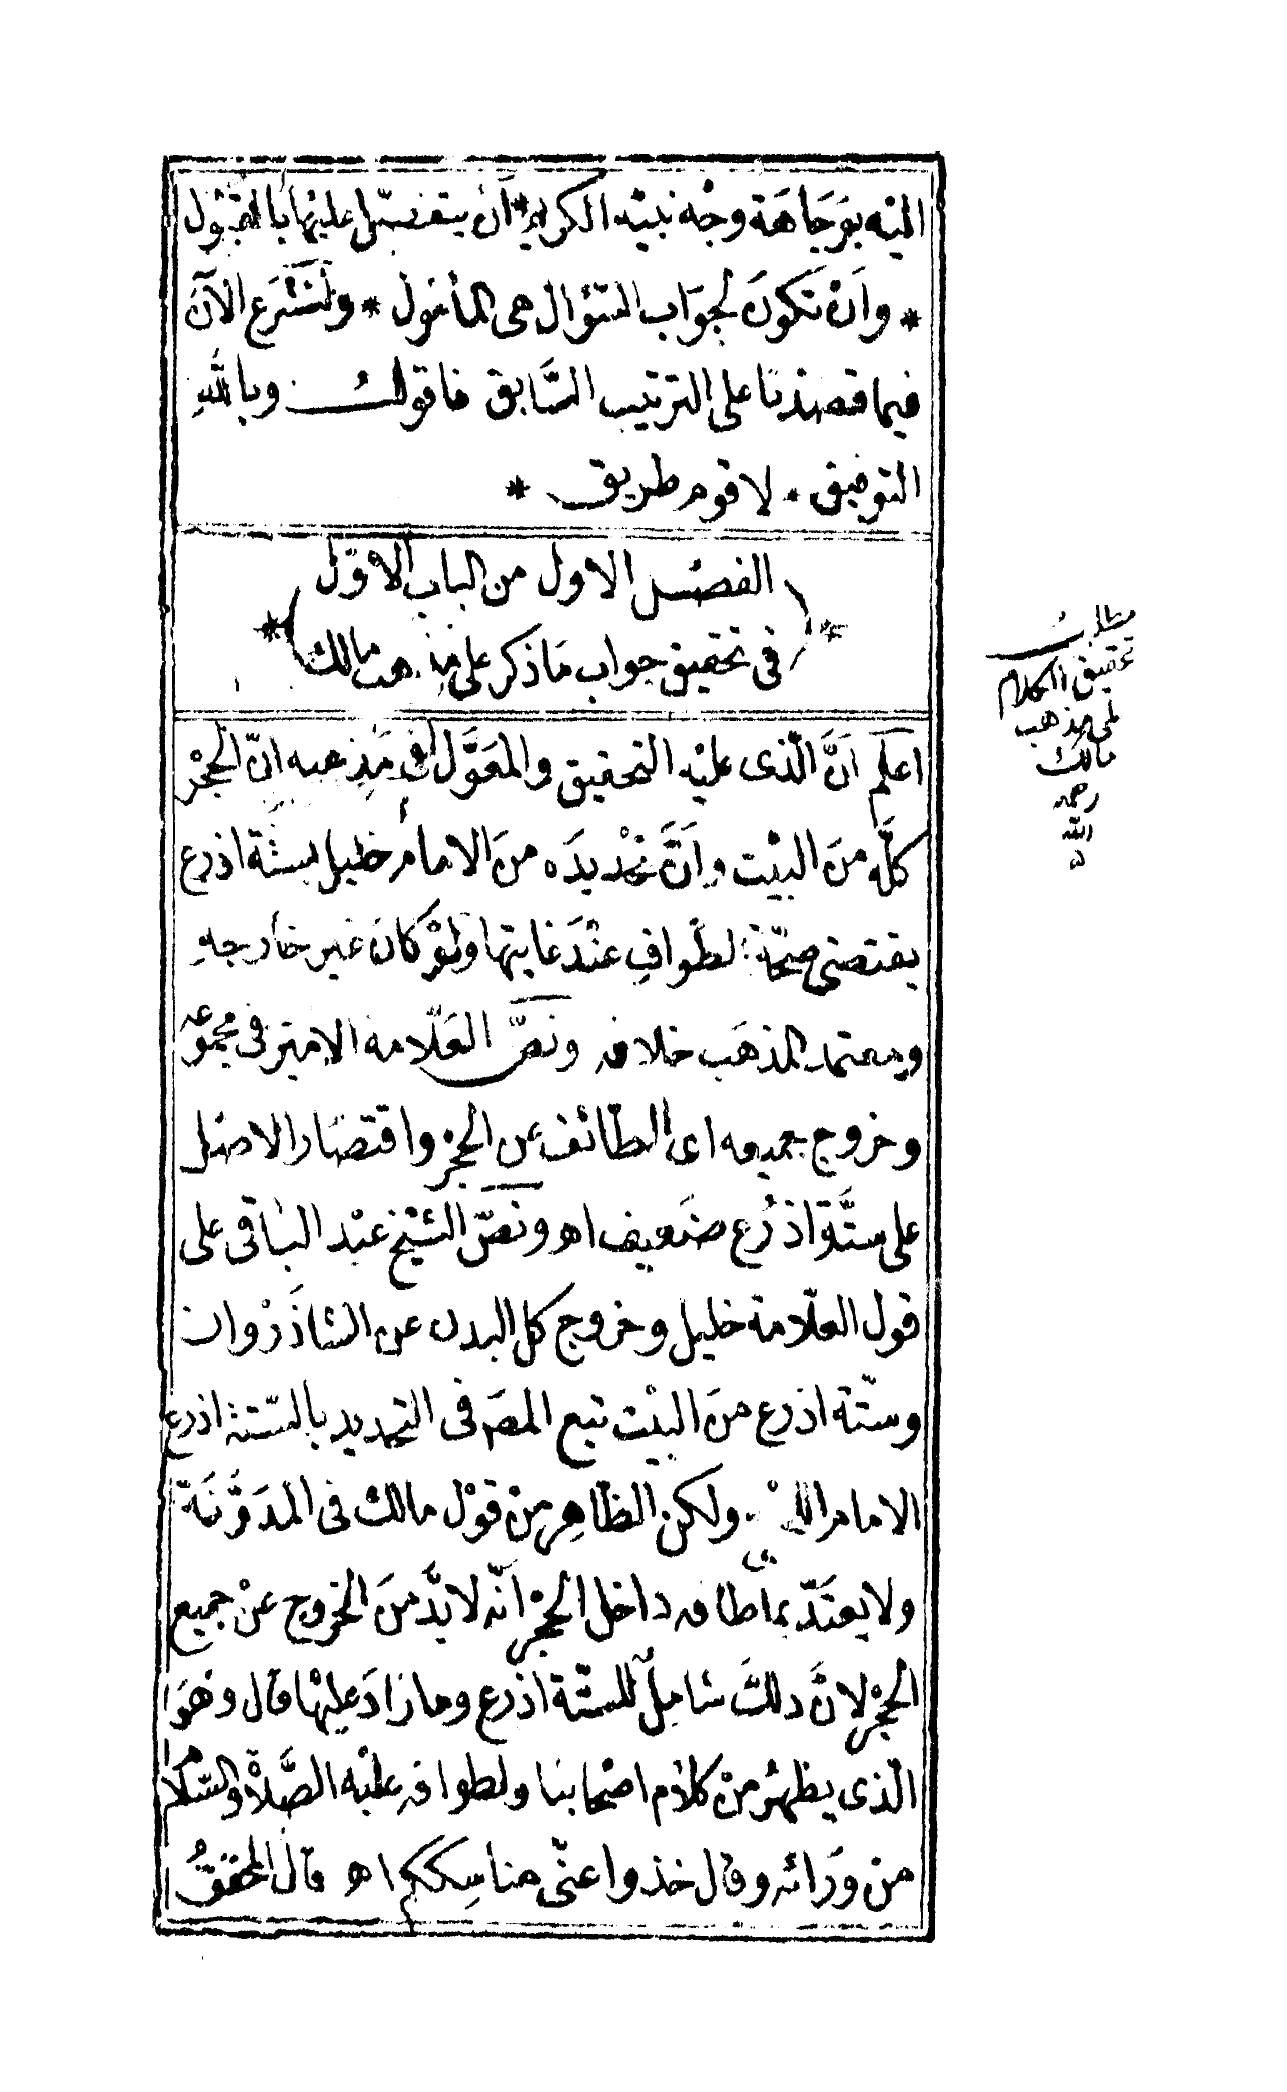 اليْه بوَجَاهَة وجْه نبيّه الكريم * أن يتفضّل عليْها بالقبُول
* وَأنْ تكونَ لجوَاب السّؤال هى المأمول * ولنَشْرَع الآنَ
فيما قصدْنا على الترتيب السَّابق فاقولُ وبالله
التوفيق * لاقوم طريق *
الفصْل الاول من الباب الاوّل
* فى تحقيق جواب مَاذكر على مذهب مالك *
اعلم اَنَّ الّذى عليْه التحقيق والمعَوَّل فى مَذهبه انّ الحِجْر
كلَّه منَ البيْت وانَّ تحْديدَه منَ الامام خليل بستَّة اذرع
يقتضى صحّة الطوافِ عنْدَ غايتها ولوْ كانَ غير خارجهِ
ومعتمد المذهَب خلافه ونَصّ العَلّامة الامير فى مجموعه
وخروج جميعه اى الطّائف عن الحِجْر واقتصَار الاصْل
على ستَّة اذرُع ضَعيف اه ونَصّ الشيْخ عبْد الباقى على
قول العلّامة خليل وخروج كل البدن عن الشاذَرْوان
وستّة اذرع منَ البيْت تبع المصَ فى التحديد بالستّة اذرع
الامام ولكن الظّاهر منْ قوْل مالك فى المدَوَّنَة
ولا يعتَدّ بما طاف به داخل الحِجْر انّه لابدَّ منَ الخروج عنْ جميع
الحِجْر لانَّ ذلكَ شاملٌ للستّة اذرع ومازادَ عليْها قال وَهوَ
الّذى يظهرُ منْ كلاَم اصْحابنا ولطوافه عليْه الصَّلاة والسّلام
منْ وَرَائه وقال خذوا عنّى مناسِككم اه قال المحققُ
مطلبُ
تحقيق الكلام
على مذهب
مالك
رحمه
الله